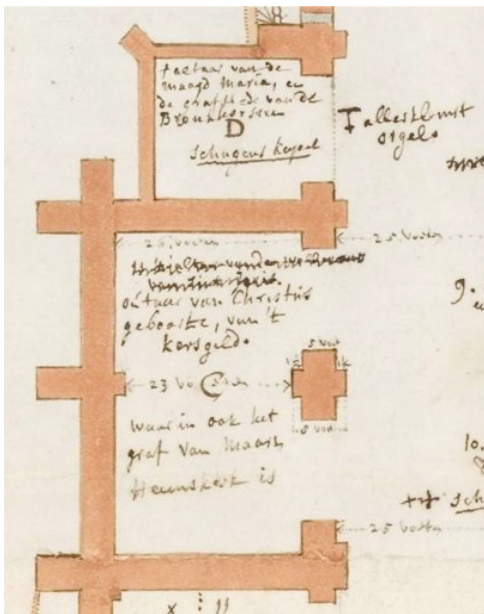 t autaar van de
maagd Maria, en
de grafstede van de
Bronkhorsten
D
Schagens kapel
T allerkleinst
orgel.
26 voeten
25 voeten
outaar van Christus
geboorte, van 't
kersgild.
9.
5 voet
23 voeten
C
5 voet
waar in ook het
graf van Maart
Heemskerk is
10.
Sch
25 voeten
x